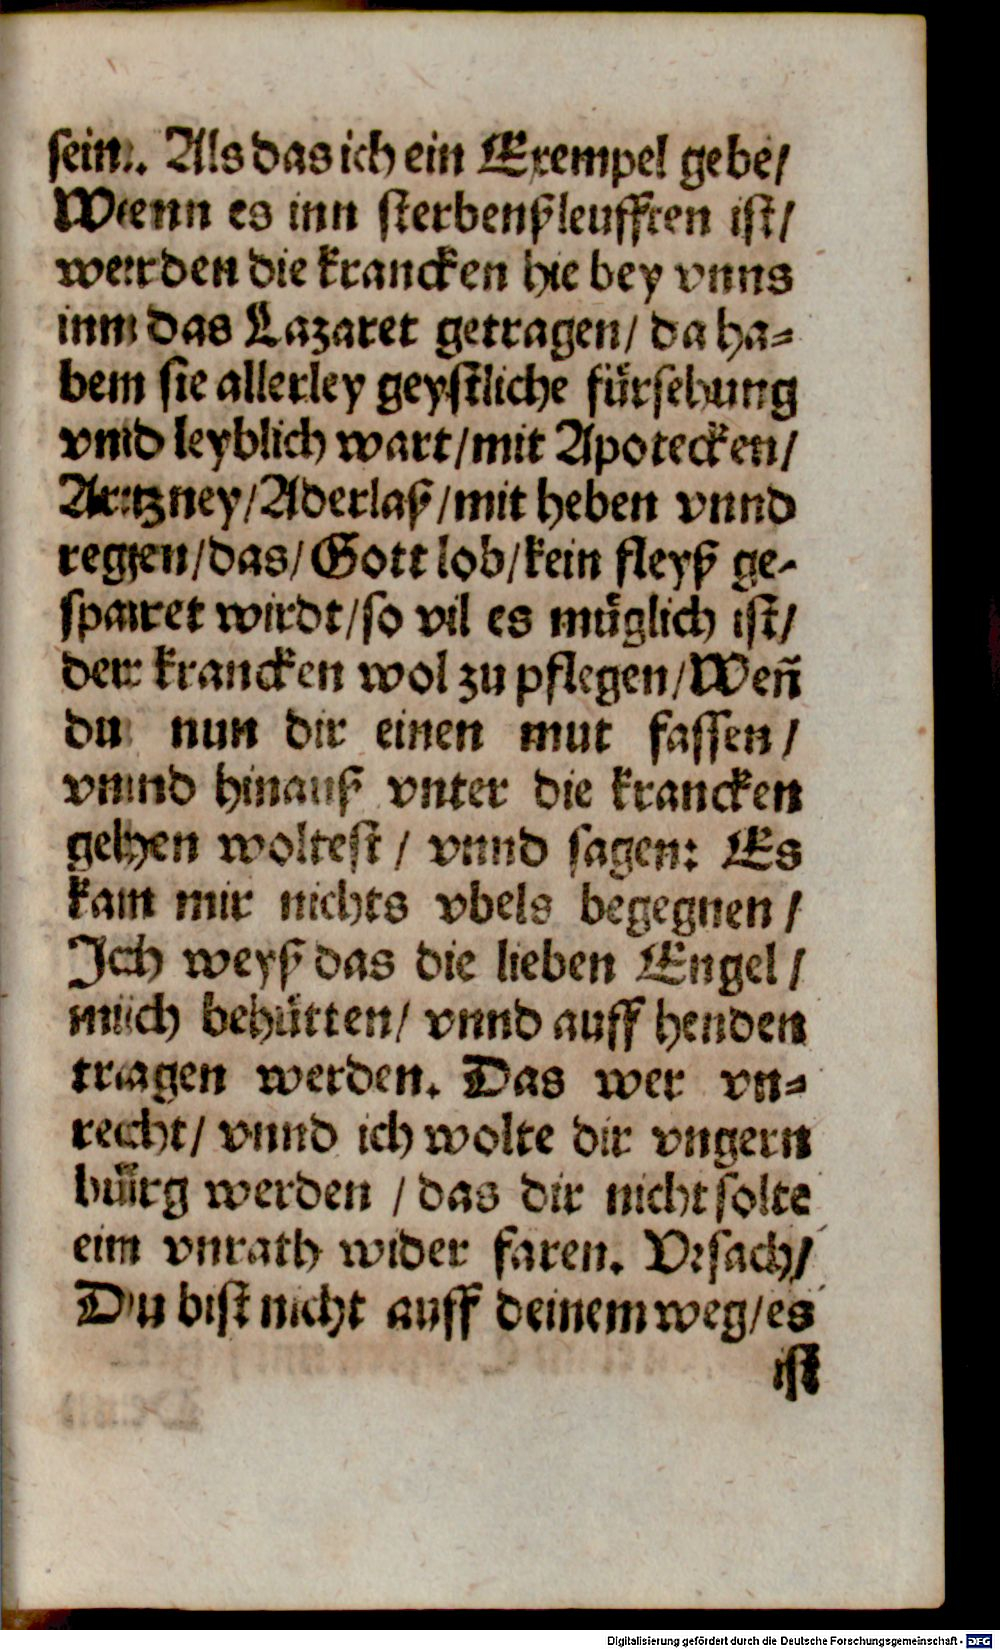 sein. Als das ich ein Exempel gebe/
Wenn es inn sterbenßleufften ist/
werden die krancken hie bey vnns
inn das Lazaret getragen/ da ha-
ben sie allerley geystliche fürsehung
vnd leyblich wart/mit Apotecken/
Artzney/Aderlaß/mit heben vnnd
regen/das/Gott lob/kein fleyß ge-
sparet wirdt/so vil es müglich ist/
der krancken wol zu pflegen/Weñ
du nun dir einen mut fassen/
vnnd hinauß vnter die krancken
gehen woltest / vnnd sagen: Es
kan mir nichts vbels begegnen /
Ich weyß das die lieben Engel/
mich behütten/ vnnd auff henden
tragen werden. Das wer vn-
recht/ vnnd ich wolte dir vngern
bürg werden / das dir nicht solte
ein vnrath wider faren. Vrsach/
Du bist nicht auff deinem weg/es
ist
Digitalisierung gefördert durch die Deutsche Forschungsgemeinschaft - DFG